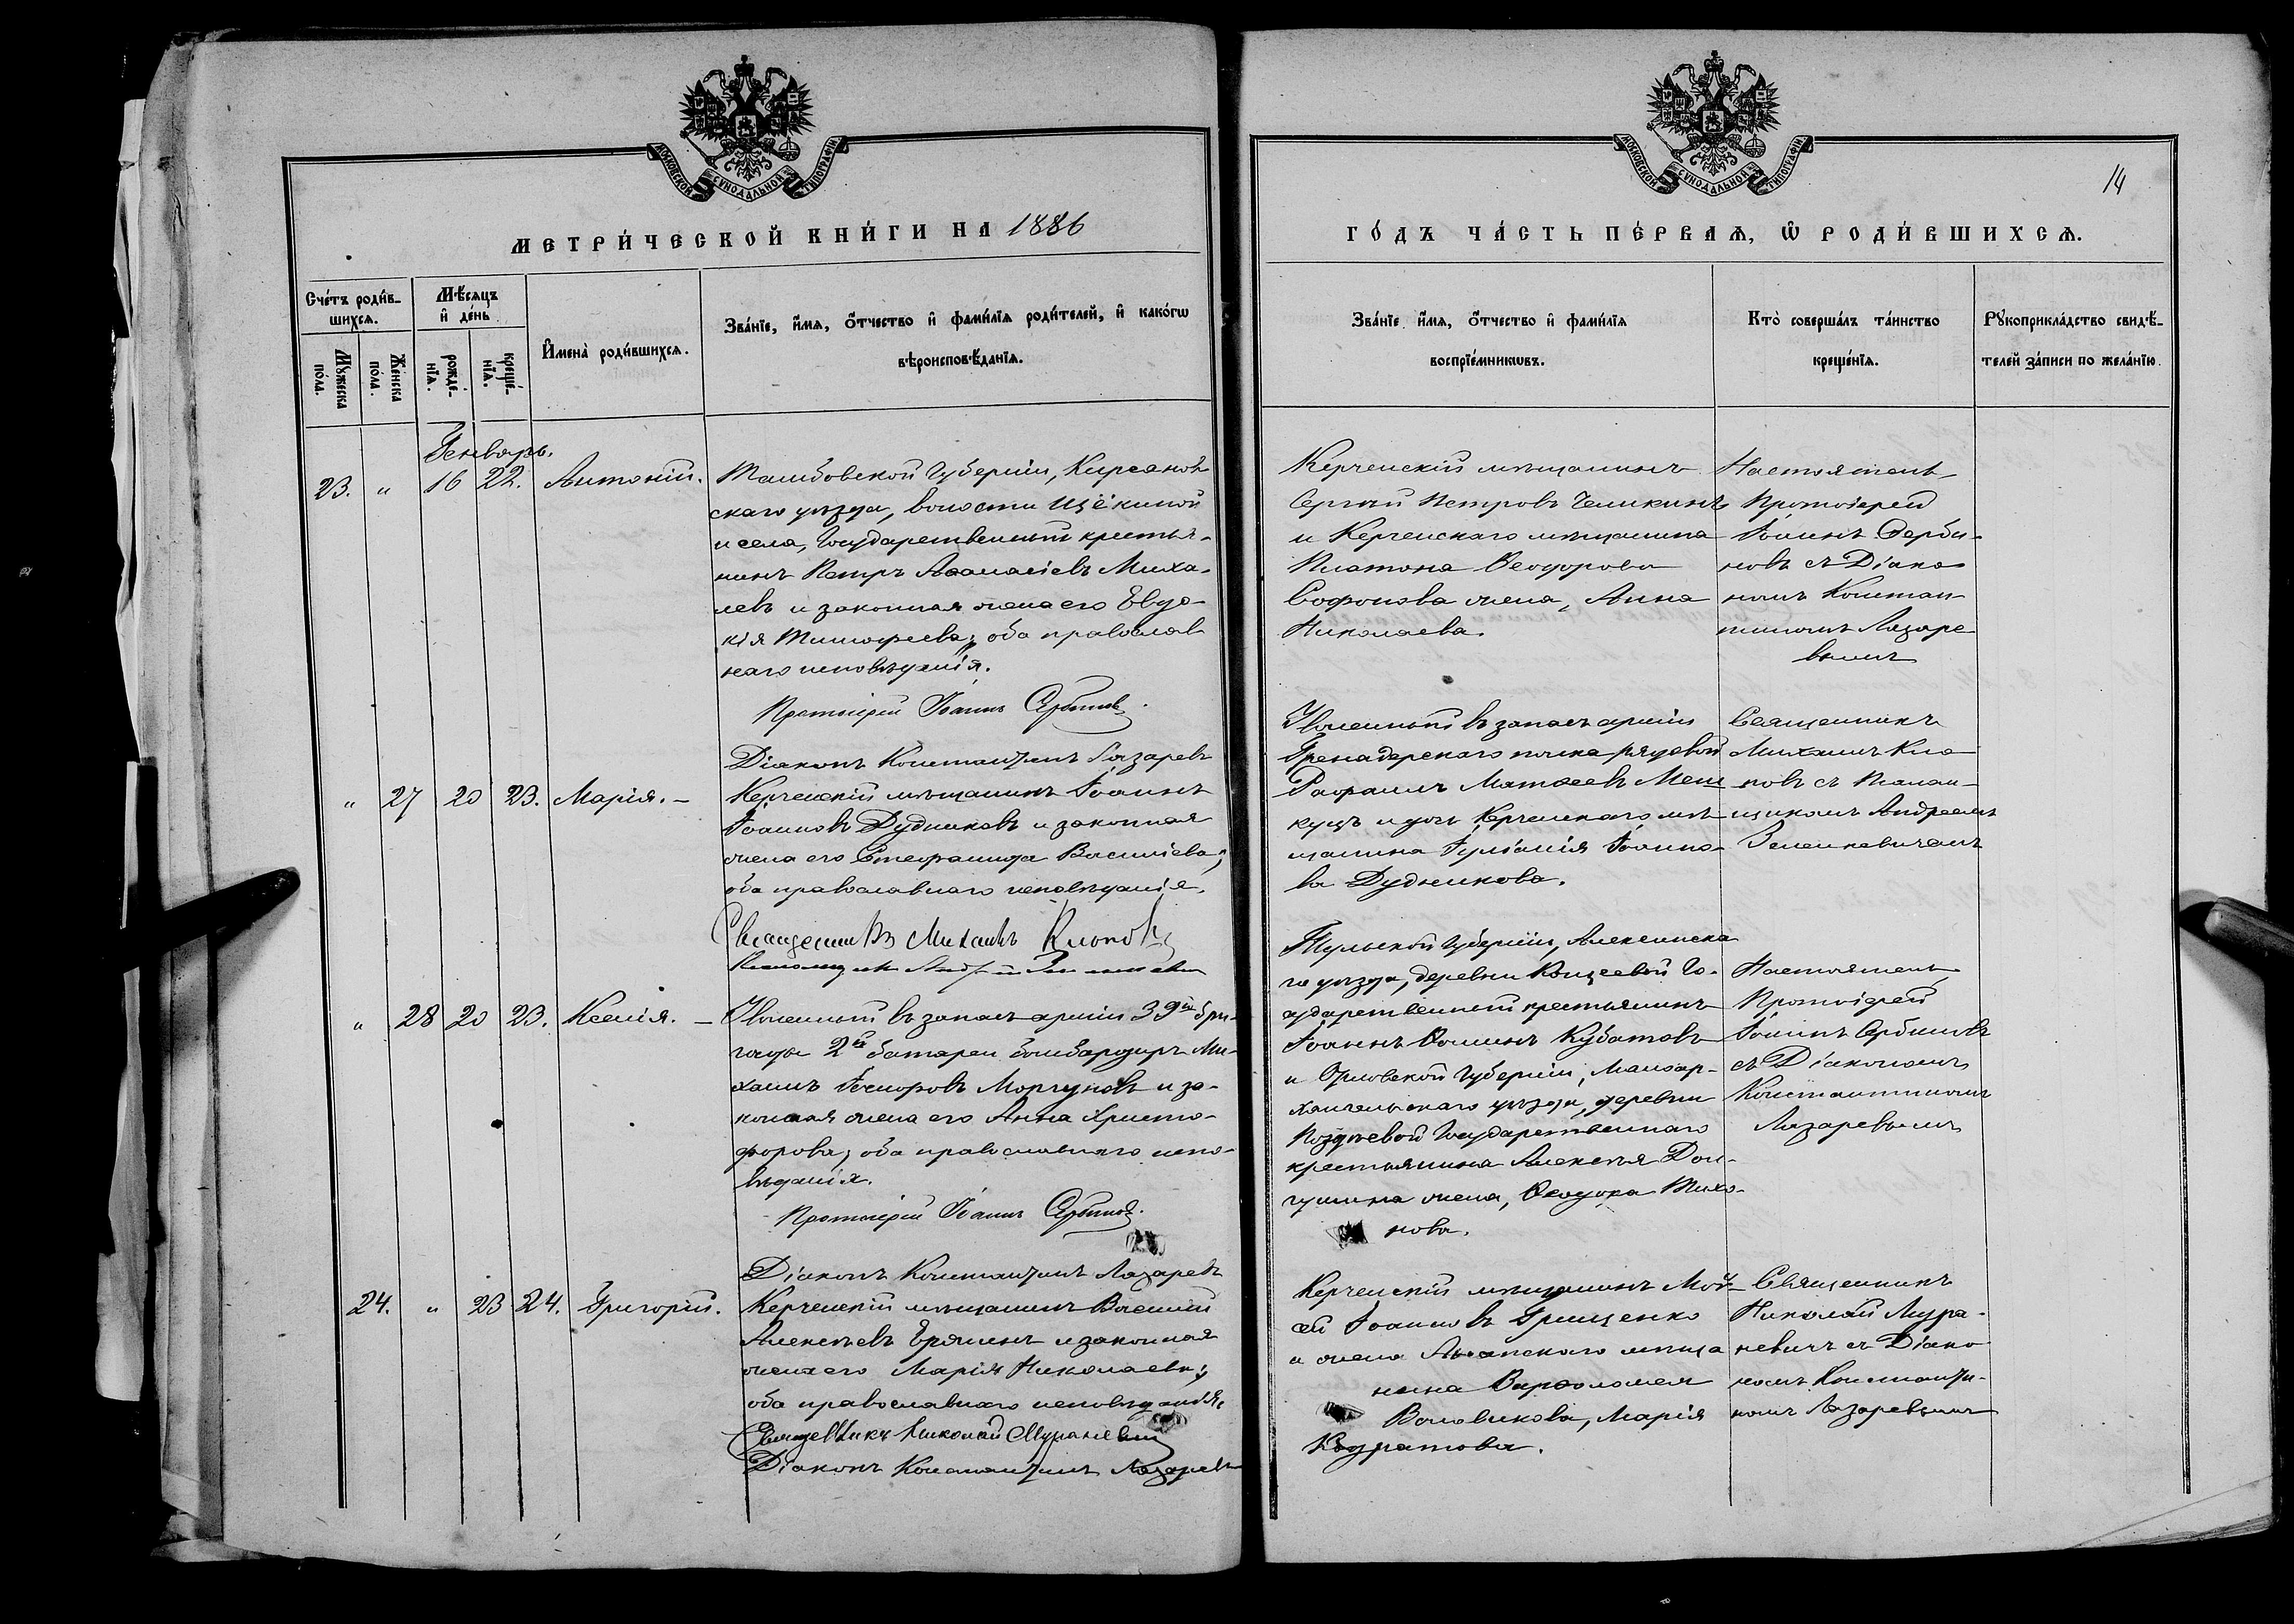 МОСКОВСКОЙ СУНОДАЛЬНОЙ ТИПОГРАФІИ
МЕТРИ́ЧЕСКОЙ КНИ́ГИ НА 1886
Сче́тъ роди́в-
шихсѧ.
Мѣ́сѧцъ
и҆ де́нь
Мꙋ́жеска
по́ла.
Же́нска
по́ла.
рожде́-
нїѧ.
креще́-
нїѧ.
И҆мена̀ роди́вшихсѧ.
Зва́нїе, и҆́мѧ, ѻ҆́тчество и҆ фами́лїѧ роди́телей, и҆ како́гѡ
вѣроисповѣ́данїѧ.
Генварь.
23. " 16 22. Антоній.
Тамбовской Губерніи, Кирсанов
скаго уѣзда, волости Щёкиной
и села, Государственный крестья-
нинъ Петръ Аѳанасіевъ Миха-
левъ и законная жена его Евдо-
кія Тимофеева; оба православ
наго исповѣданія.
Протоіерей Іоаннъ Сербиновъ.
Діаконъ Константинъ Лазаревъ
" 27 20 23. Марія. –
Керченскій мѣщанинъ Іоаннъ
Іоанновъ Дудниковъ и законная
жена его Стефанида Василіева;
оба православнаго исповѣданія.
Священникъ Михаилъ Клоповъ
" 28 20 23. Ксенія. –
Уволенный въ запасъ арміи 39ой бри-
гады 2ой батареи бомбардиръ Ми-
хаилъ Моргуновъ и за-
конная жена его Анна Христо-
форова; оба православнаго испо-
вѣданія.
Протоіерей Іоаннъ Сербиновъ.
Діаконъ Константинъ Лазаревъ
24. " 23 24. Григорій.
Керченскій мѣщанинъ Василій
Алексѣевъ и законная
жена его Марія Николаева;
оба православнаго исповѣданія.
Священникъ Николай Мураневичъ
Діаконъ Константинъ Лазаревъ
МОСКОВСКОЙ СУНОДАЛЬНОЙ ТИПОГРАФІИ
14
ГО́ДЪ ЧА́СТЬ ПЕ́РВАѦ, Ѡ҆ РОДИ́ВШИХСѦ.
Зва́нїе и҆́мѧ, ѻ҆́тчество и҆ фами́лїѧ
воспрїе́мникѡвъ.
Кто̀ соверша́лъ та́инство
креще́нїѧ.
Рꙋкоприкла́дство свидѣ́-
телей за́писи по жела́нїю.
Керченскій мѣщанинъ
Сергѣй Петровъ Чемикинъ
и Керченскаго мѣщанина
Платона Ѳеодорова
Софонова жена, Анна
Николаева.
Настоятель
Протоіерей
Іоаннъ Серби-
новъ съ Діако
номъ Констан
тиномъ Лазаре
вымъ
Уволенный въ запасъ арміи
Гренадерскаго полка рядовой
Рафаилъ Матѳеевъ Меш
куцъ и дочь Керченскаго мѣ-
щанина Іуліанія Іоанно-
ва Дудникова.
Священникъ
Михаилъ Кло
повъ съ Псалом-
щикомъ Андреемъ
Зеленкевичемъ
Тульской Губерніи, Алексинска
го уѣзда, деревни Кощеевой Го-
сударственный крестьянинъ
Іоаннъ Ѳоминъ Кубатовъ
и Орловской Губерніи, Малоар-
хангельскаго уѣзда, деревни
Поздѣевой Государственнаго
крестьянина Алексѣя Дол-
гушина жена, Ѳеодора Тихо-
нова.
Настоятель
Протоіерей
Іоаннъ Сербиновъ
съ Діакономъ
Константиномъ
Лазаревымъ
Керченскій мѣщанинъ Мои-
сей Іоанновъ Грищенко
и жена Анапскаго мѣща
нина Варѳоломея
Воловикова, Марія
Кодратова.
Священникъ
Николай Мура-
невичъ съ Діако
номъ Константи-
номъ Лазаревымъ